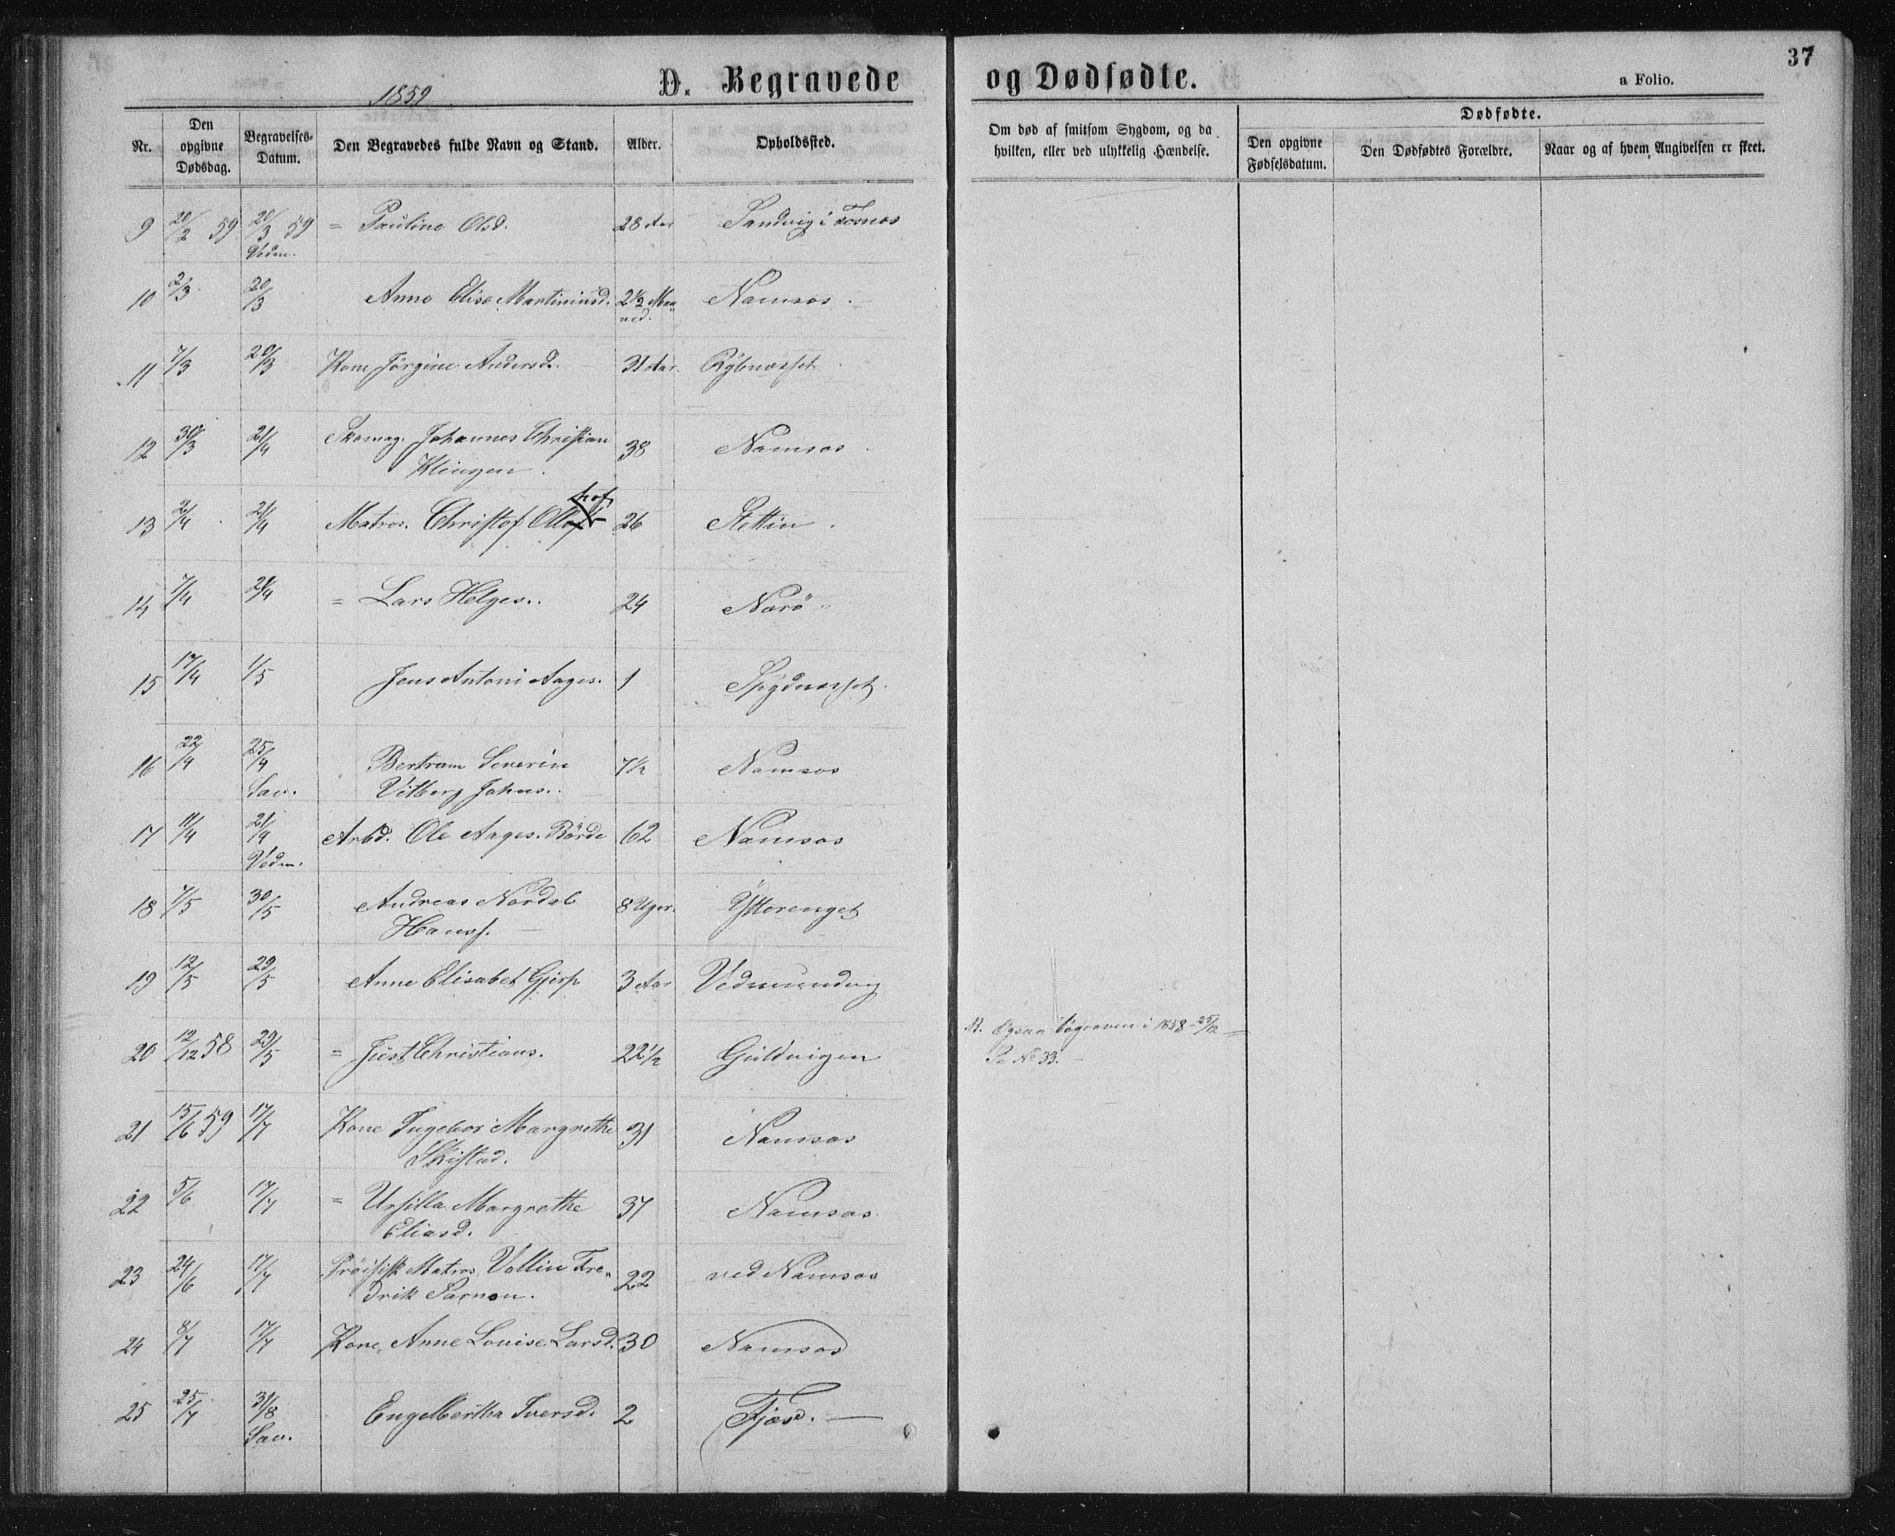 37
1859
D. Begravede og Dødfødte.
a Folio.
Nr. Den opgivne Dødsdag. Begravelses-Datum. Den Begravedes fulde Navn og Stand. Alder. Opholdssted. Om død af smitsom Sygdom, og da hvilken, eller ved ulykkelig Hændelse. Dødfødte. Den opgivne Fødselsdatum. Den Dødfødtes Forældre. Naar og af hvem Angivelsen er skeet.
9 20/2 59 20/3 59 = Pauline Olsd. 28 Aar Sandvig i Fosnæs
Vedm.
10 2/3 20/3 Anne Elise Martiniusd. 2 1/2 Maa-
ned. Namsos
11 7/3 20/3 Kone Jørgine Andersd. 31 Aar
12 30/3 21/4 Skomag. Johannes Christian 38 Namsos
Klingen
13 2/4 21/4 Matros. Christof Ollhof 26 Stettin
14 7/4 21/4 = Lars Helges. 24 Nærö
15 17/4 1/5 Jens Antoni Aages. 1 Spydnæsset
16 22/4 25/4 Bertram Severin 7 1/2 Namsos
Sav. Vitberg Johns.
17 11/4 21/4 Arbd. Ole Aages. Börde 62 Namsos
Vedm.
18 7/5 30/5 Andreas Nordal 8 Uger. Ytterenget
Hanss.
19 12/5 29/5 Anne Elisabet Gjerp 3 Aar Vedmundvig
20 12/12 58 29/5 = Just Christians. 22 1/2 Guldvigen Ogsaa begraven i 1858 - 25/12
Se No 33.
21 15/6 59 17/7 Kone Ingebor Margrethe 31 Namsos
Skistad.
22 5/6 17/7 = Ursilla Margrethe 37 Namsos
Eliasd.
23 24/6 17/7 Pröisisk Matros Vollin Fre- 22 ved Namsos
drik Sarnon.
24 8/7 17/7 Kone Anne Louise Larsd. 30 Namsos
25 25/7 31/8 Engelbertha Iversd. 2 Fjæsd.
Sav.